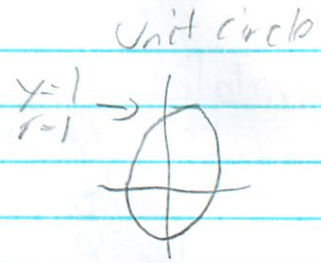 Unit circle
y=1
r=1